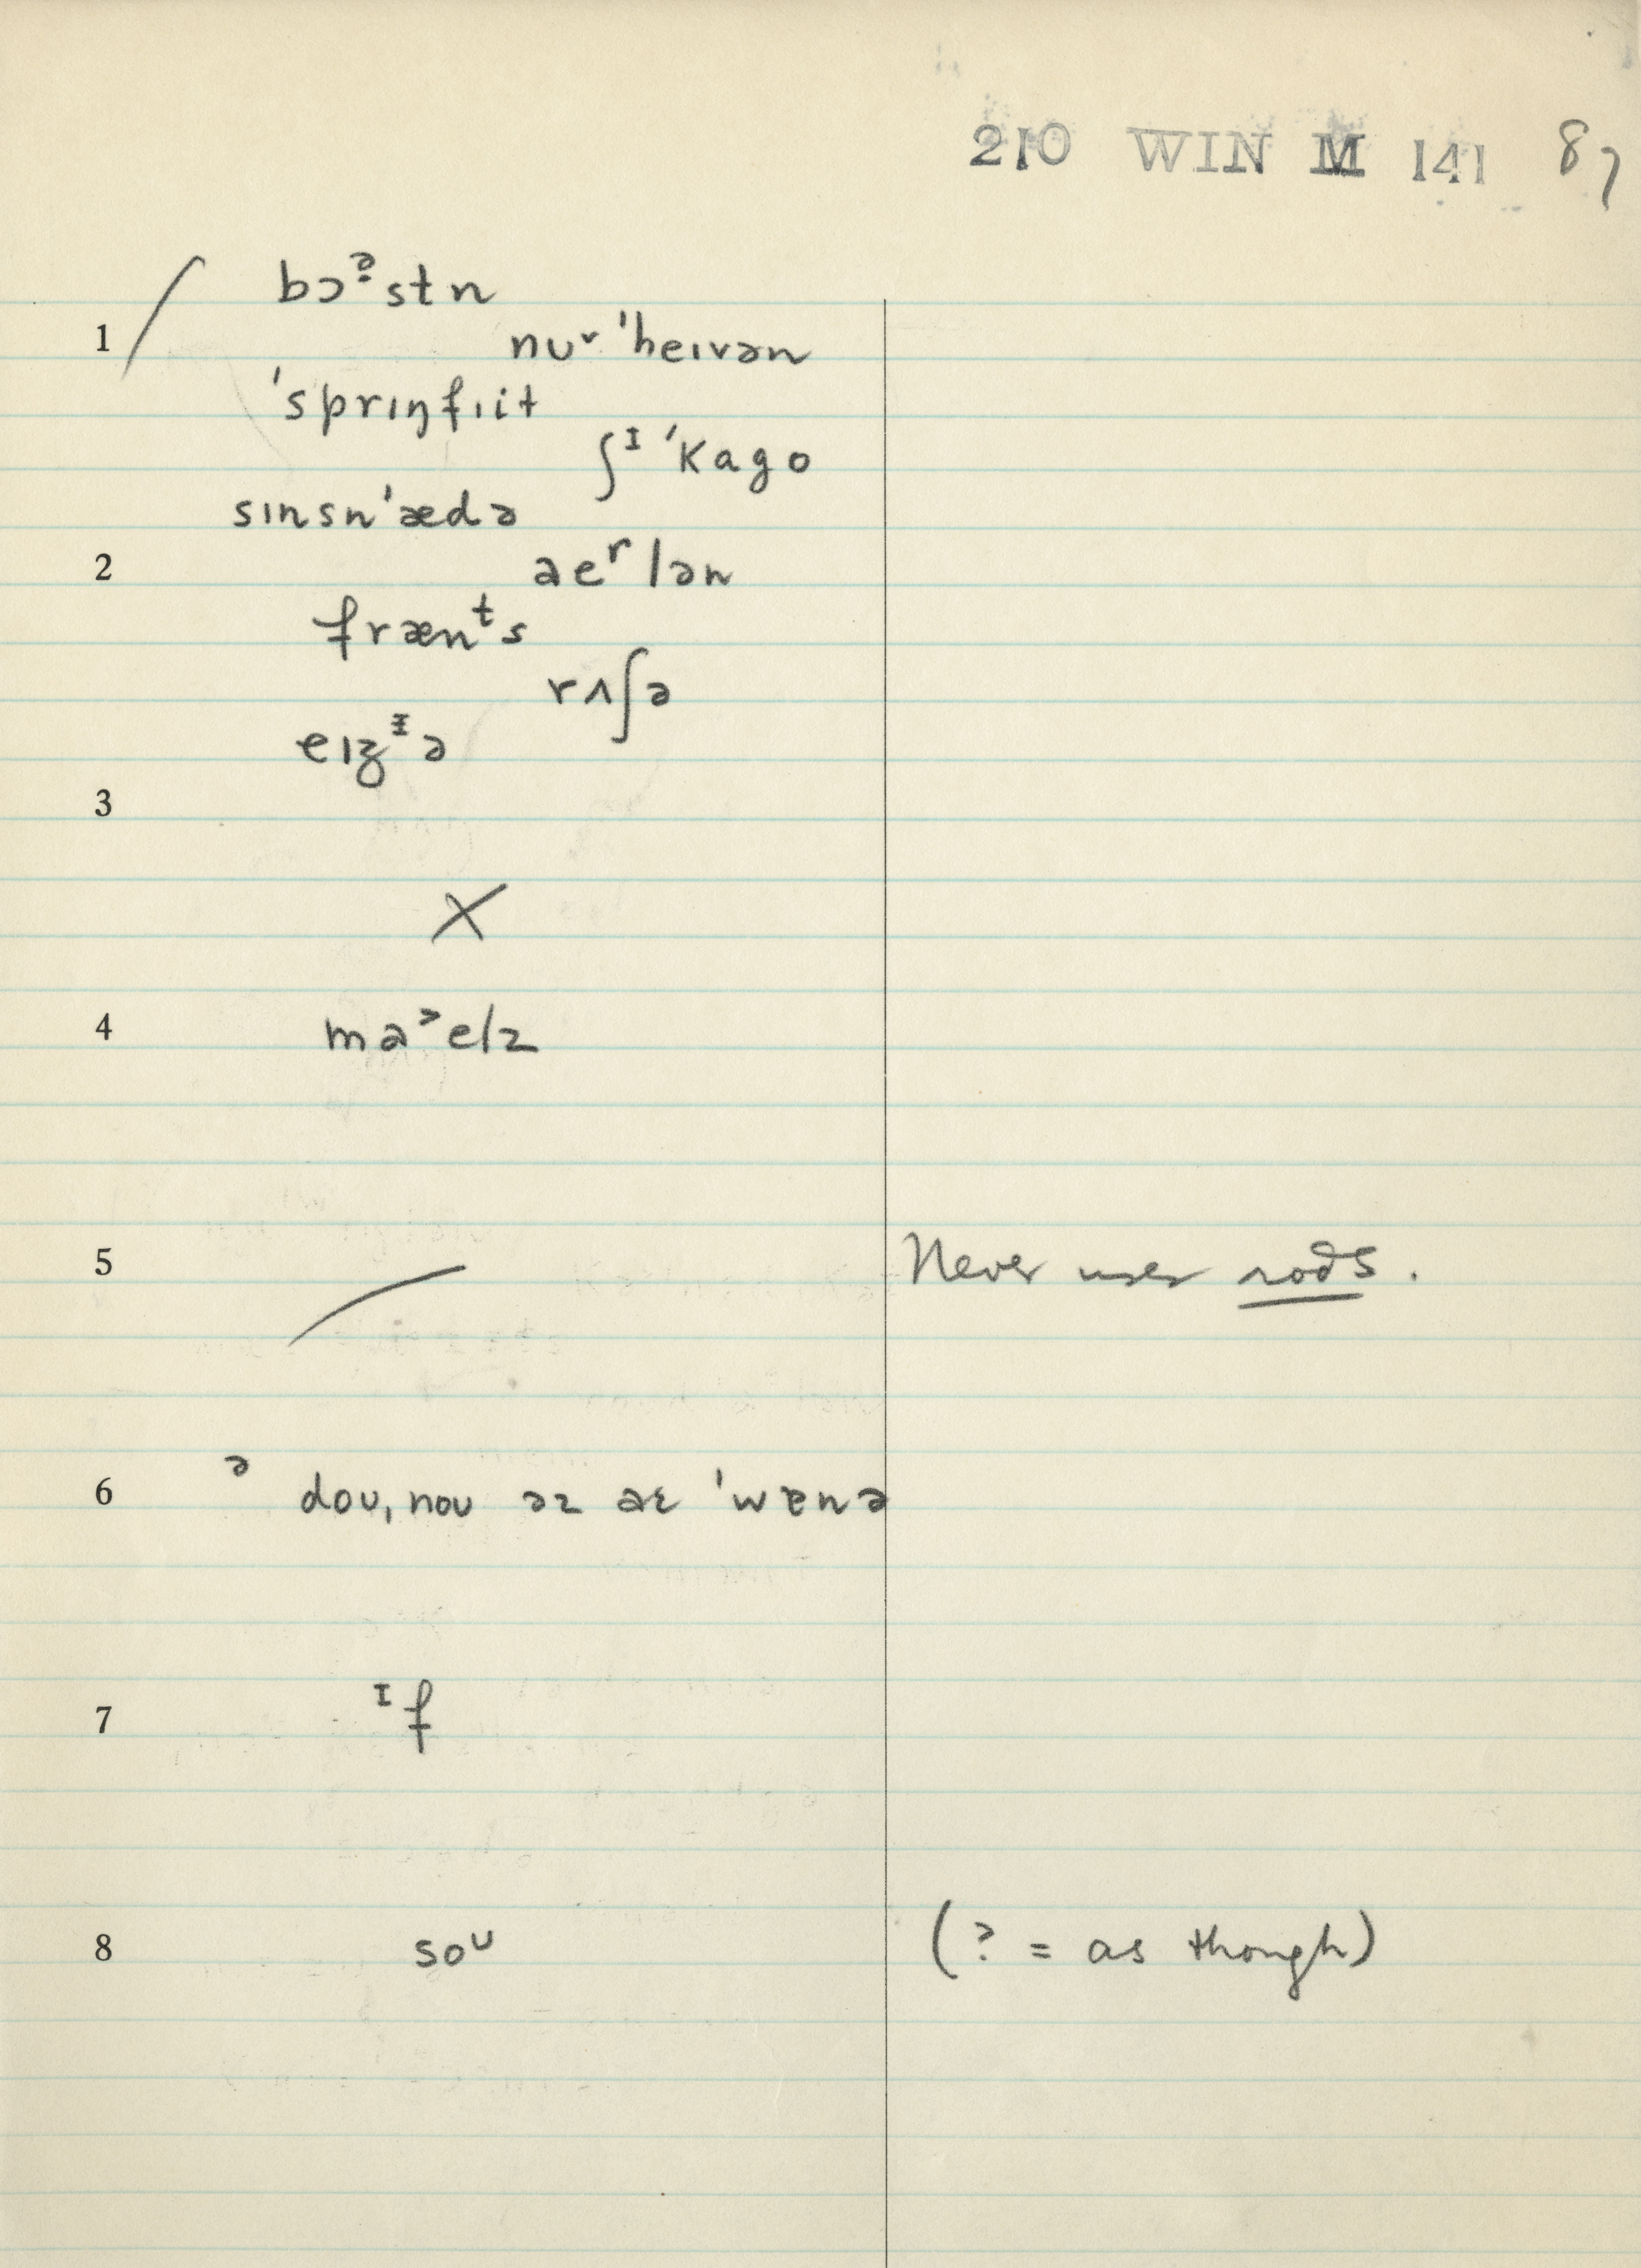 210 WIN M 141 87
bɔᵊ̣stn
1 nuʳ ˈheɪvən
ˈsprɪŋfɪit
ʃᴵ ˈkago
sɪnsnˈædə
2 aeʳlən
frænᵗs
rʌʃə
eɪʒᶦə
3
X
4 maᵊelz
5 Never uses rods.
ə
6 doʊ, noʊ əz aɛ ˈwɐnə
7 ᴵf
8 soᵁ (? = as though)